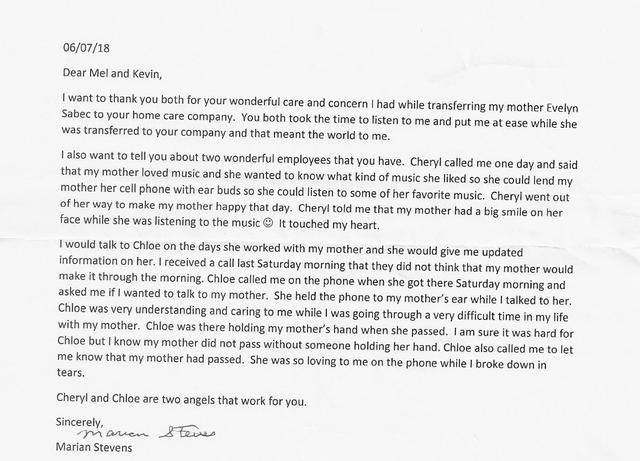 06/07/18
Dear Mel and Kevin,
I want to thank you both for your wonderful care and concern I had while transferring my mother Evelyn
Sabec to your home care company.  You both took the time to listen to me and put me at ease while she
was transferred to your company and that meant the world to me.
I also want to tell you about two wonderful employees that you have.  Cheryl called me one day and said
that my mother loved music and she wanted to know what kind of music she liked so she could lend my
mother her cell phone with ear buds so she could listen to some of her favorite music.  Cheryl went out
of her way to make my mother happy that day.  Cheryl told me that my mother had a big smile on her
face while she was listening to the music ☺  It touched my heart.
I would talk to Chloe on the days she worked with my mother and she would give me updated
information on her. I received a call last Saturday morning that they did not think that my mother would
make it through the morning. Chloe called me on the phone when she got there Saturday morning and
asked me if I wanted to talk to my mother.  She held the phone to my mother's ear while I talked to her.
Chloe was very understanding and caring to me while I was going through a very difficult time in my life
with my mother.  Chloe was there holding my mother's hand when she passed.  I am sure it was hard for
Chloe but I know my mother did not pass without someone holding her hand. Chloe also called me to let
me know that my mother had passed.  She was so loving to me on the phone while I broke down in
tears.
Cheryl and Chloe are two angels that work for you.
Sincerely,
Marian Stevens
Marian Stevens